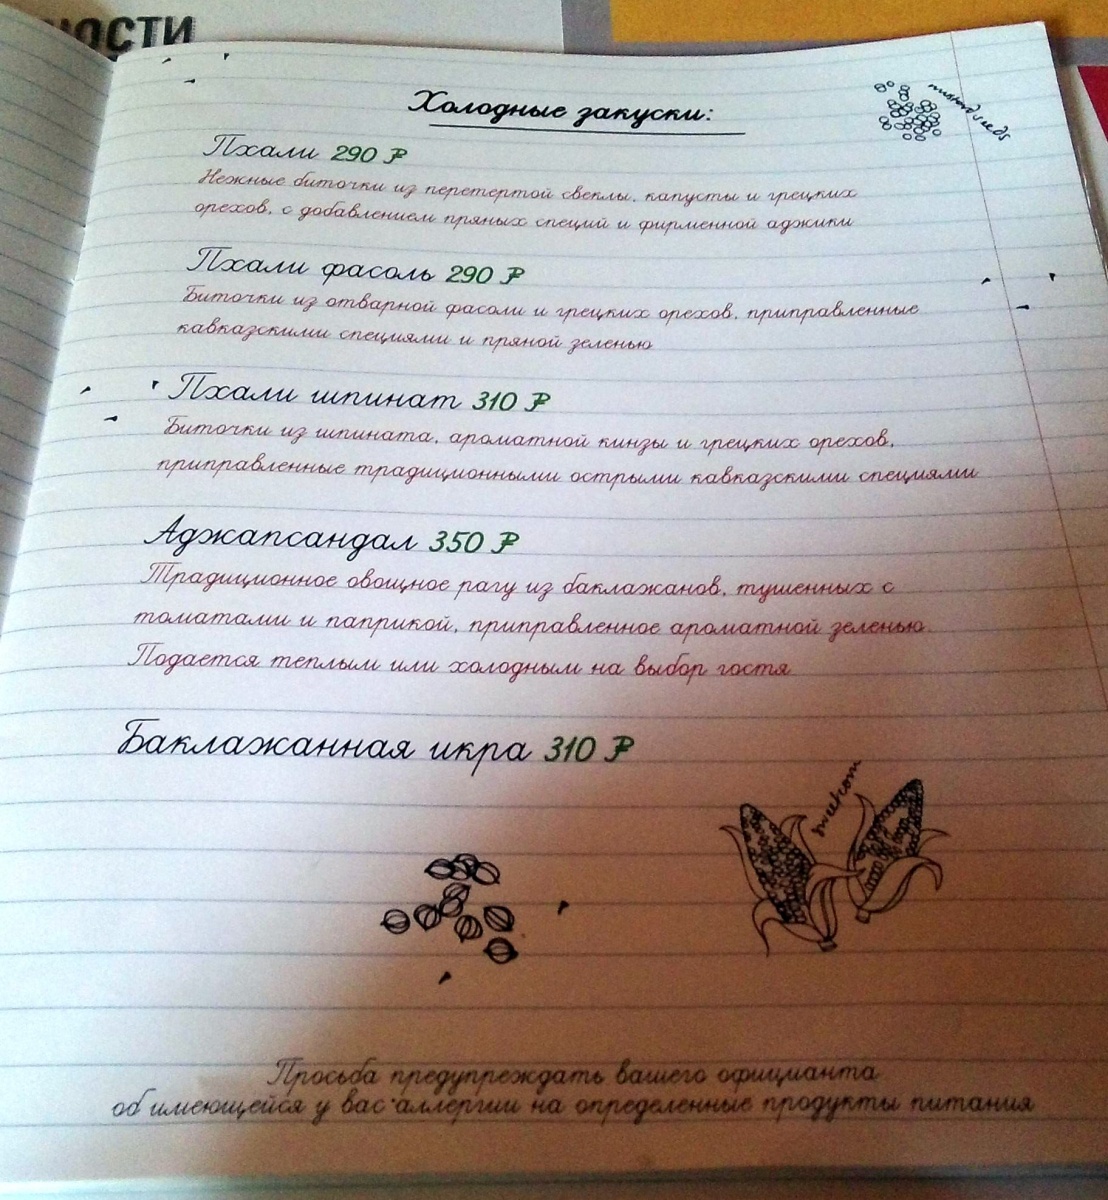 ности
Холодные закуски:
mustard seeds
Пхали 290 ₽
Нежные биточки из перетертой свеклы, капусты и грецких
орехов, с добавлением пряных специй и фирменной аджики
Пхали фасоль 290 ₽
Биточки из отварной фасоли и грецких орехов, приправленные
кавказскими специями и пряной зеленью
Пхали шпинат 310 ₽
Биточки из шпината, ароматной кинзы и грецких орехов,
приправленные традиционными острыми кавказскими специями
Аджапсандал 350 ₽
Традиционное овощное рагу из баклажанов, тушенных с
томатами и паприкой, приправленное ароматной зеленью.
Подается теплым или холодным на выбор гостя
Баклажанная икра 310 ₽
Просьба предупреждать вашего официанта
об имеющейся у вас аллергии на определенные продукты питания